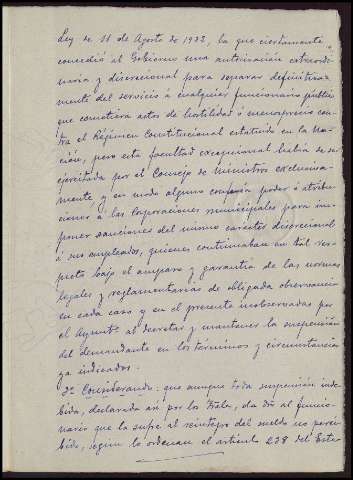 Ley de 11 de Agosto de 1932, la que ciertamente
concedió al Gobierno una autorización extraordi-
naria y discrecional para separar definitiva-
mente del servicio á cualquier funcionario públi-
co que cometiera actos de hostilidad ó menosprecio con-
tra el Régimen Constitucional estatuido en la Na-
ción, pero esta facultad excepcional había de ser
ejercitada por el Consejo de Ministros exclusiva-
mente y en modo alguno confería poder ó atribu-
ciones á las Corporaciones municipales para im-
poner sanciones del mismo carácter discrecional
á sus empleados, quienes continuaban en tal res-
pecto bajo el amparo y garantía de las normas
legales y reglamentarias de obligada observancia
en cada caso y en el presente inobservadas por
el Ayuntº al decretar y mantener la suspensión
del demandante en los términos y circunstancias
ya indicados.
3º Considerando: que aunque toda suspensión inde-
bida, declarada así por los Trales, da dro al funcio-
nario que la sufre al reintegro del sueldo no perci-
bido, según lo ordenan el artículo 238 del Esta-